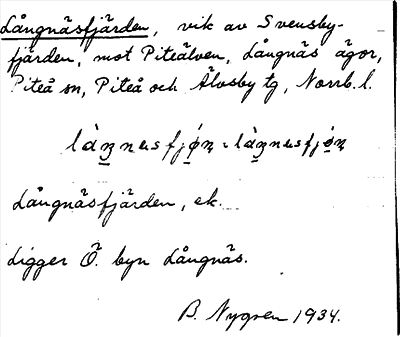 Långnäsfjärden, vik av Svensby-
fjärden, mot Piteälven, Långnäs ägor,
Piteå sn, Piteå och Älvsby tg, Norrb. l.
Långnäsfjärden, ek.
Ligger Ö. byn Långnäs.
B. Nygren 1934.